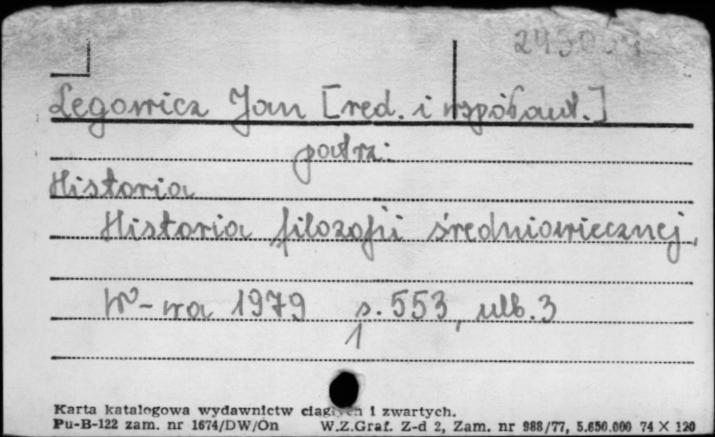 Legowicz Jan [red. i współaut.]
patrz:
Historia
Historia filozofii średniowiecznej,
W-wa 1979 s. 553, ulb. 3
1
Karta katalogowa wydawnictw ciągłych i zwartych.
Pu-B-122 zam. nr 1674/DW/On W.Z.Graf. Z-d 2, Zam. nr 988/77, 5.650.000 74 X 120